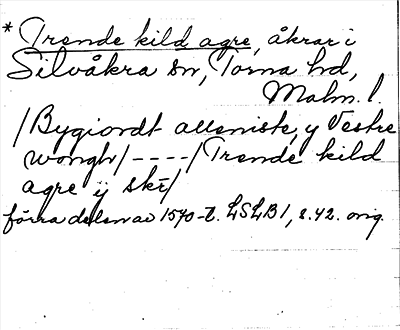 * Trende kild agre, åkrar i
Silvåkra sn, Torna hd,
Malm. l.
/Bygiordt alleniste, y Vestre
wongh/----/Trende kild
agre ij skē/
förra delen av 1570-t. LSLB1, s.42. orig.